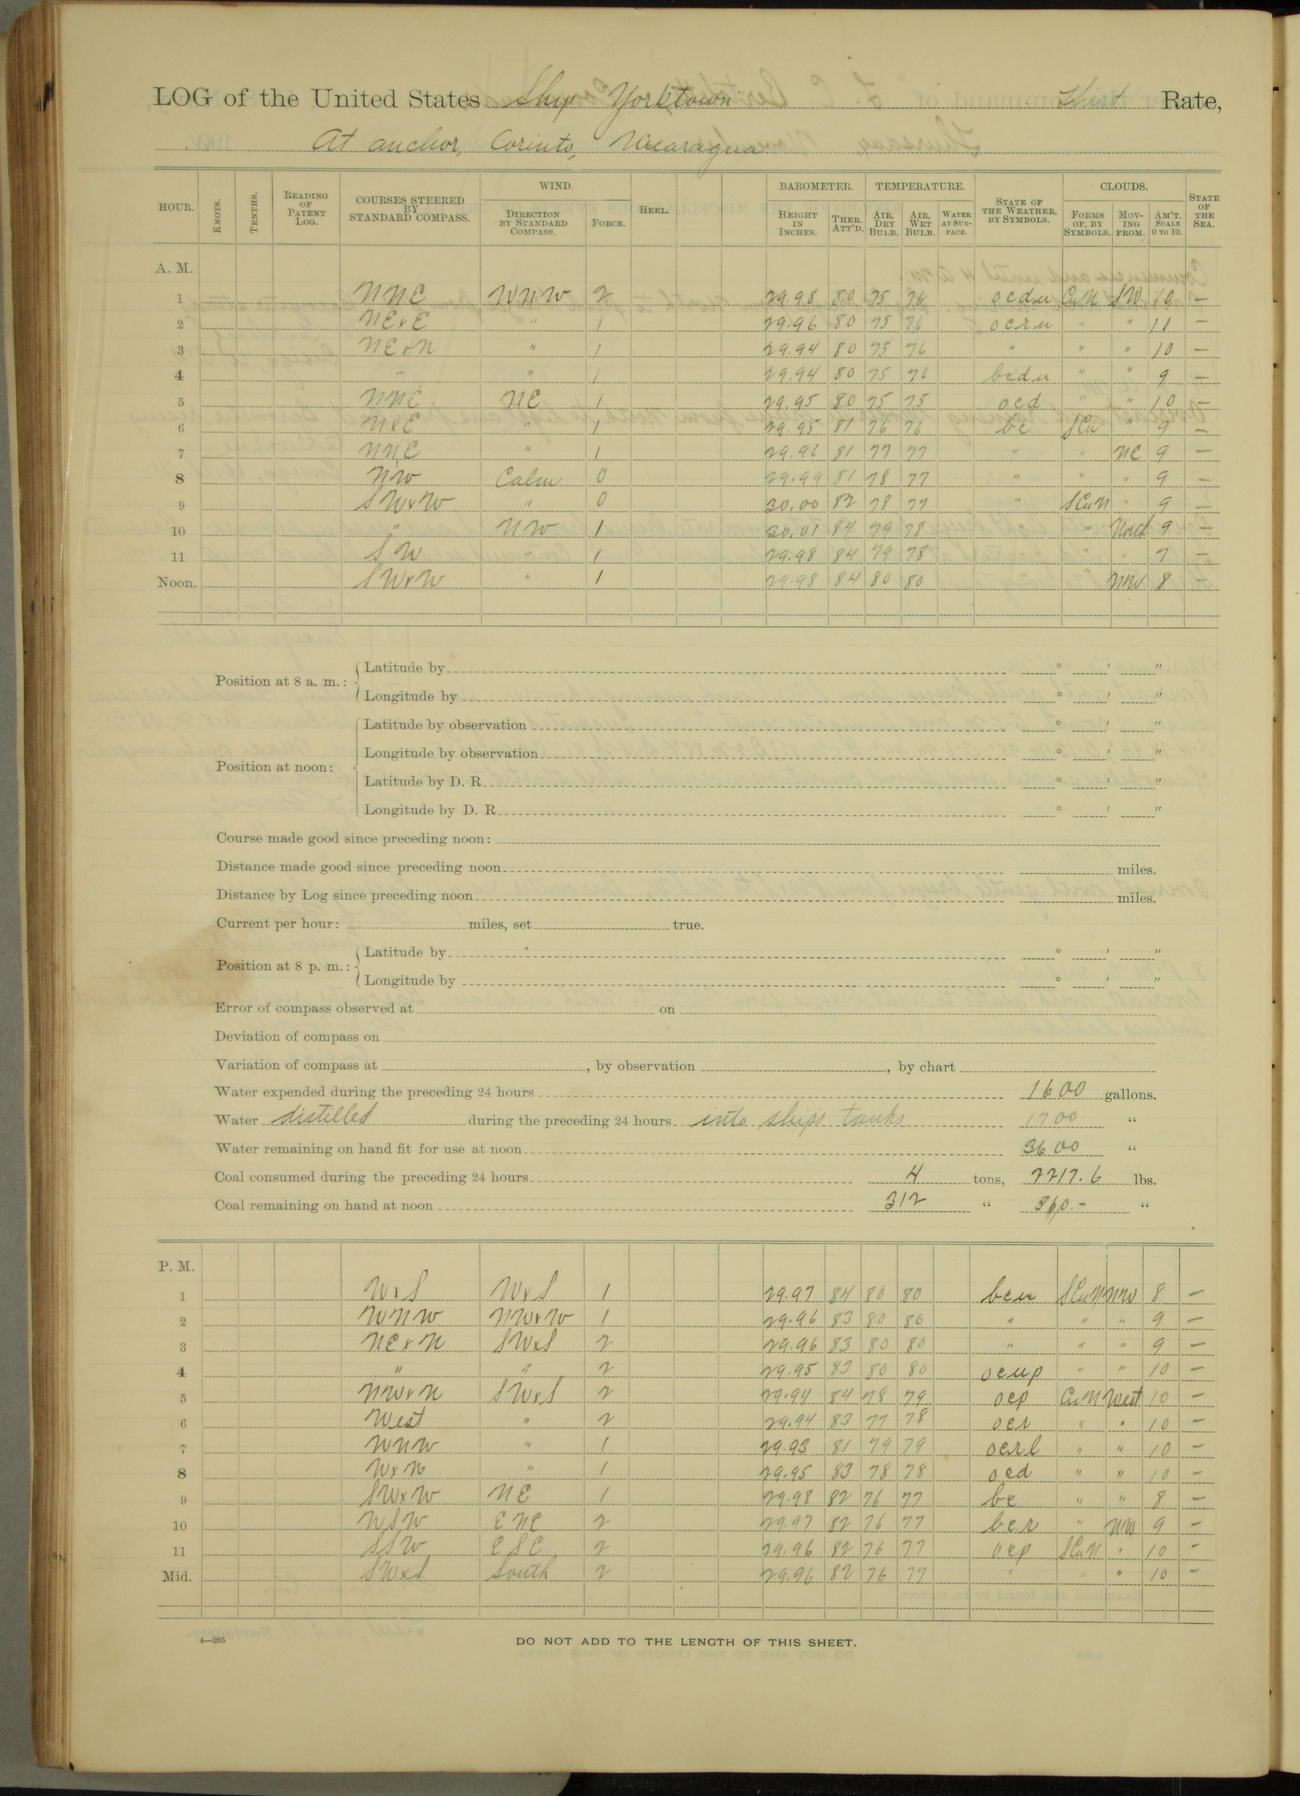 LOG of the United States Ship Yorktown Third Rate,
At anchor, Corinto, Nicaragua
HOUR. KNOTS. TENTHS. READING OF PATENT LOG. COURSES STEERED BY STANDARD COMPASS. WIND. DIRECTION BY STANDARD COMPASS. FORCE. HEEL. BAROMETER. HEIGHT IN INCHES. THER. ATT'D. TEMPERATURE. AIR, DRY BULB. AIR, WET BULB. WATER AT SURFACE. STATE OF THE WEATHER, BY SYMBOLS. CLOUDS. FORMS OF, BY SYMBOLS. MOVING FROM. AM'T. SCALE 0 TO 10. STATE OF THE SEA.
A. M.
1 NNE WNW 2 29.98 80 75 76 ocdu CuN SW 10 —
2 NExE " 1 29.96 80 75 76 ocru " " 10 —
3 NExN " 1 29.94 80 75 76 " " " 10 —
4 " " 1 29.94 80 75 76 bcdu " " 9 —
5 NNE NE 1 29.95 80 75 75 ocd " " 10 —
6 NxE " 1 29.95 81 76 76 bc SCu " 9 —
7 NNE " 1 29.96 81 77 77 " " NE 9 —
8 NW Calm 0 29.99 81 78 77 " " " 9 —
9 SWxW " 0 30.00 82 78 77 " SCuN " 9 —
10 " NW 1 30.01 84 79 78 " Nord 9 —
11 SW " 1 29.98 84 79 78 " " 7 —
Noon. SWxW " 1 29.98 84 80 80 " " NNW 8 —
Position at 8 a. m.: Latitude by ° ' "
Longitude by ° ' "
Position at noon: Latitude by observation ° ' "
Longitude by observation ° ' "
Latitude by D. R. ° ' "
Longitude by D. R. ° ' "
Course made good since preceding noon:
Distance made good since preceding noon miles.
Distance by Log since preceding noon miles.
Current per hour: miles, set true.
Position at 8 p. m.: Latitude by ° ' "
Longitude by ° ' "
Error of compass observed at on
Deviation of compass on
Variation of compass at , by observation , by chart
Water expended during the preceding 24 hours 1600 gallons.
Water distilled during the preceding 24 hours into ship's tanks 1700 "
Water remaining on hand fit for use at noon 3600 "
Coal consumed during the preceding 24 hours 4 tons, 2217.6 lbs.
Coal remaining on hand at noon 312 " 360.- "
P. M.
1 WxS WxS 1 29.97 84 80 80 bcu SCuN NW 8 —
2 WNW NWxW 1 29.96 83 80 80 " " " 9 —
3 NExN SWxS 2 29.96 83 80 80 " " " 9 —
4 " " 2 29.95 83 80 80 ocup " " 10 —
5 NWxN SWxS 2 29.94 84 78 79 ocp CuN West 10 —
6 West " 2 29.94 83 77 78 ocr " " 10 —
7 WNW " 1 29.93 81 79 79 ocrl " " 10 —
8 WxN " 1 29.95 83 78 78 ocd " " 10 —
9 SWxW NE 1 29.98 82 76 77 bc " " 8 —
10 WSW ENE 2 29.97 82 76 77 bcr " NW 9 —
11 SSW ESE 2 29.96 82 76 77 ocp SCuN " 10 —
Mid. SWxS South 2 29.96 82 76 77 " " " 10 —
4—265 DO NOT ADD TO THE LENGTH OF THIS SHEET.